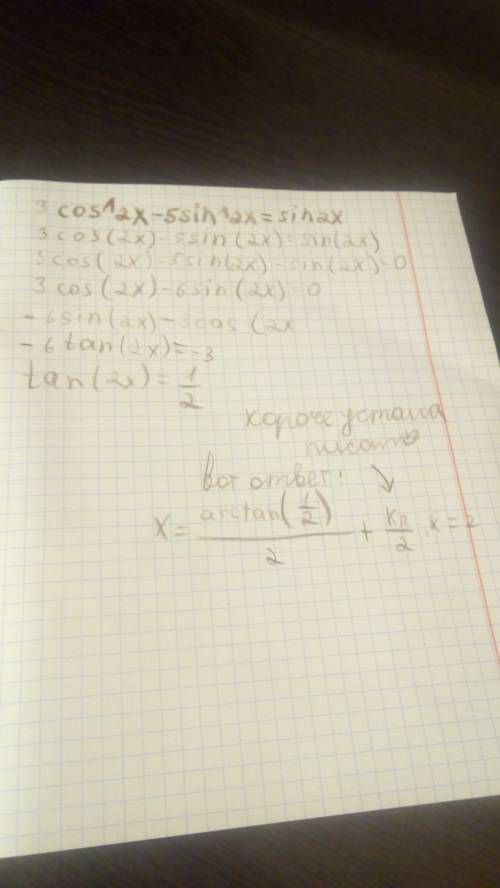 3 cos^2x-5sin^2x=sin2x
3cos(2x)-5sin(2x)=sin(2x)
3cos(2x)-5sin(2x)-sin(2x)=0
3cos(2x)-6sin(2x)=0
-6sin(2x)-3cos(2x
-6tan(2x)=-3
tan(2x)=1/2
короче устала
писать
вот ответ:
x=arctan(1/2)/2+kπ/2,k=z